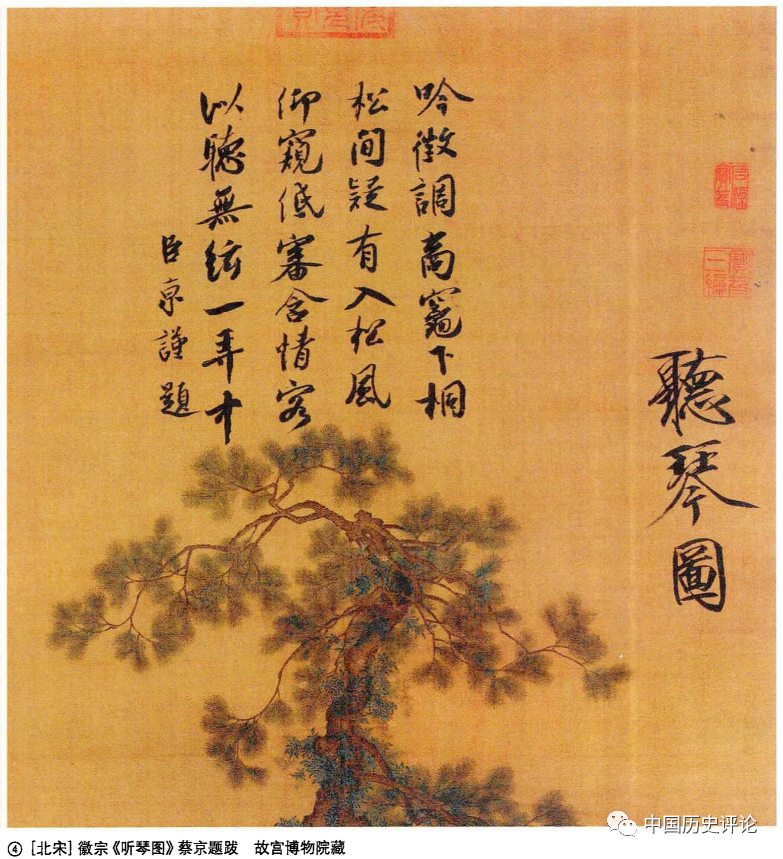 聽琴圖
吟徵調商竈下桐
松間疑有入松風
仰窺低審含情客
似聽無絃一弄中
臣京謹題
中国历史评论
④ [北宋] 徽宗《听琴图》蔡京题跋 故宫博物院藏